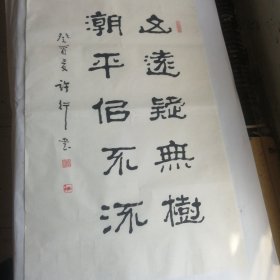 山远疑無樹
潮平侣不流
癸酉夏许行書